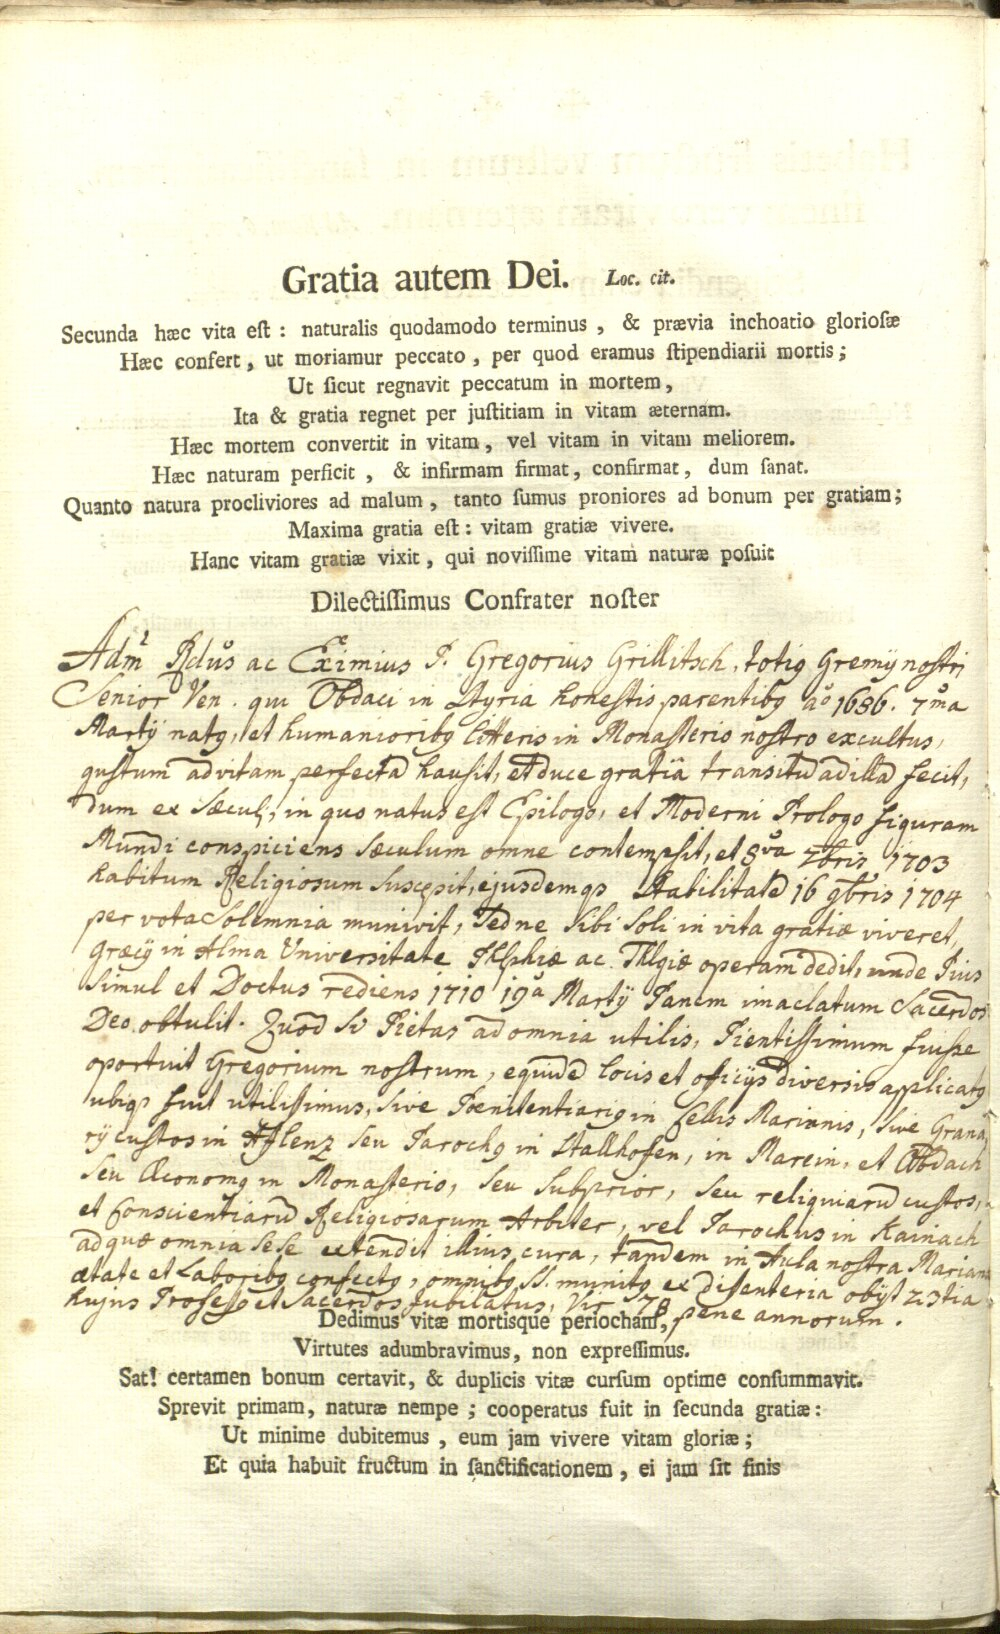 Gratia autem Dei. Loc. cit.
Secunda hæc vita eſt : naturalis quodamodo terminus , & prævia inchoatio glorioſæ
Hæc confert , ut moriamur peccato , per quod eramus ſtipendiarii mortis ;
Ut ſicut regnavit peccatum in mortem ,
Ita & gratia regnet per juſtitiam in vitam æternam.
Hæc mortem convertit in vitam , vel vitam in vitam meliorem.
Hæc naturam perficit , & infirmam firmat , confirmat , dum ſanat.
Quanto natura procliviores ad malum , tanto ſumus proniores ad bonum per gratiam ;
Maxima gratia eſt : vitam gratiæ vivere.
Hanc vitam gratiæ vixit , qui noviſſime vitam naturæ poſuit
Dilectiſſimus Confrater noſter
Admr Rdus ac Eximius P. Gregorius Grillitsch, totig Gremÿ nostri
Senior Ven. qui Obdaci in Styria honestis parentibg ao 1686. 7ma
Martÿ natg, et humanioribg litteris in Monasterio nostro excultus,
gustum ad vitam perfectā hausit, et duce gratiâ transitū ad illā fecit,
dum ex Sæculi, in quo natus est Epilogo, et Moderni Prologo figuram
Mundi conspiciens sæculum omne contempsit, et 8va Xbris 1703
habitum Religiosum suscepit, ejusdemqs Stabilitatē 16 9bris 1704
per vota solemnia munivit, sed ne sibi soli in vita gratiæ viveret,
Græcÿ in Alma Universitate Phlphiæ ac Thlgiæ operam dedit, unde Pius
simul et Doctus rediens 1710 19a Martÿ Panem imaclatum Sacerdos
Deo obtulit. Quod si Pietas ad omnia utilis, Pientissimum fuisse
oportuit Gregorium nostrum, equidē locis et officÿs diversis applicatg
ubiqs fuit utilissimus, sive Pœnitentiarig in Cellis Marianis, sive Grana
rÿ custos in Aflenz seu Parochg in Stallhofen, in Marein, et Obdach
seu Œconomg in Monasterio, seu Subprior, seu reliquiarū custos,
et Conscientiarū Religiosarum Arbiter, vel Parochus in Kainach
ad quæ omnia sese extendit illius cura, tandem in Aula nostra Mariana
ætate et Laboribg confectg, omnibg SS. munitg ex disenteria obÿt 23tia
hujus Professg et Sacerdos Jubilatus, Vir 78 pene annorum.
Dedimus vitæ mortisque periocham,
Virtutes adumbravimus, non expreſſimus.
Sat! certamen bonum certavit, & duplicis vitæ curſum optime conſummavit.
Sprevit primam, naturæ nempe ; cooperatus fuit in ſecunda gratiæ :
Ut minime dubitemus , eum jam vivere vitam gloriæ ;
Et quia habuit fructum in ſanctificationem , ei jam ſit finis